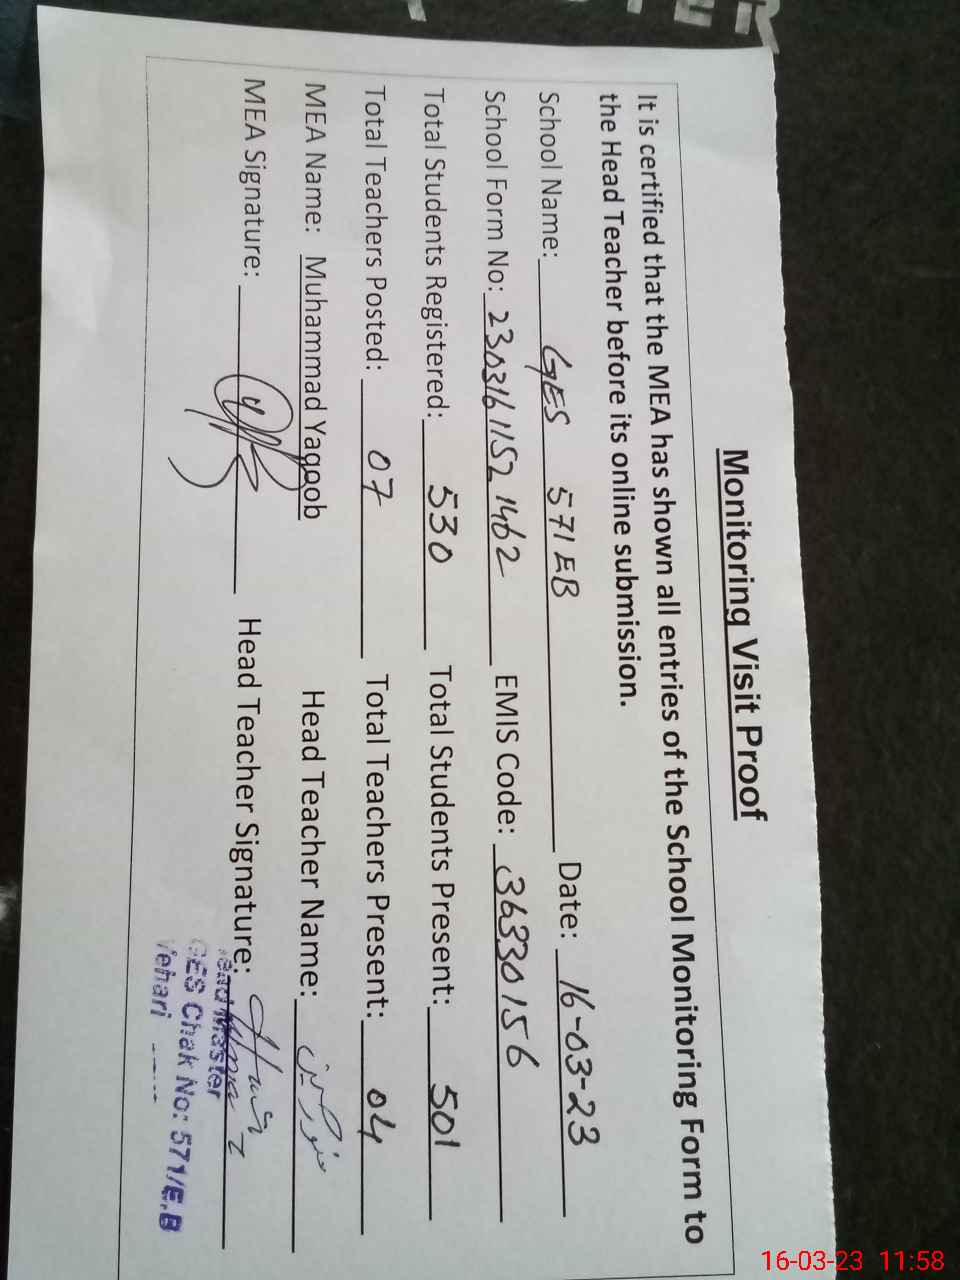 Monitoring Visit Proof
It is certified that the MEA has shown all entries of the School Monitoring Form to
the Head Teacher before its online submission.
School Name: GES 571 EB Date: 16-03-23
School Form No: 2303161152 1462 EMIS Code: 36330156
Total Students Registered: 530 Total Students Present: 501
Total Teachers Posted: 07 Total Teachers Present: 04
MEA Name: Muhammad Yaqoob Head Teacher Name:
MEA Signature: Head Teacher Signature:
Head Master
GES Chak No: 571/E.B
Vehari
16-03-23 11:58